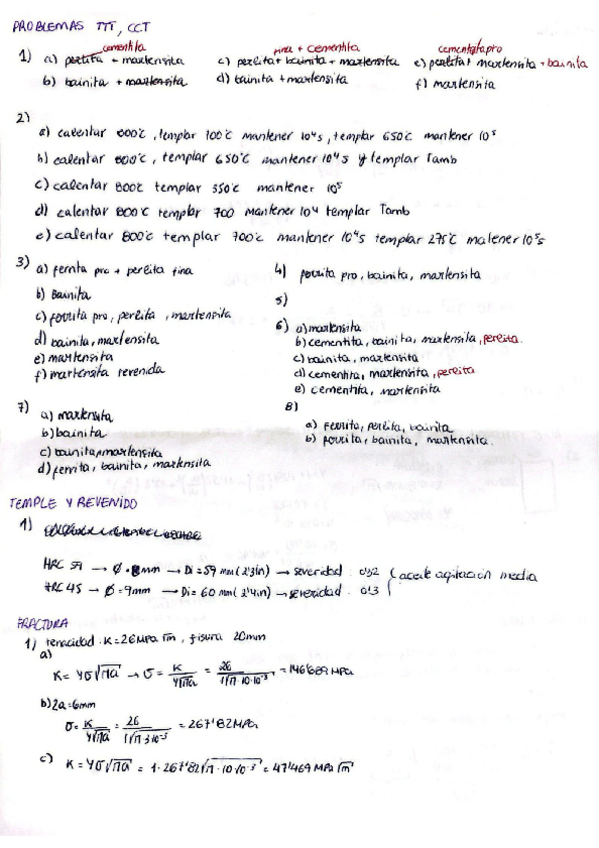 PROBLEMAS TTT, CCT
1) a) cementita + martensita c) perlita + bainita + martensita fina + cementita e) perlita + martensita + bainita cementita pro
b) bainita + martensita d) bainita + martensita f) martensita
2)
a) calentar 800°C, templar 700°C mantener 10⁴s, templar 650°C mantener 10⁵
b) calentar 800°C, templar 650°C mantener 10⁴s y templar Tamb
c) calentar 800°C templar 350°C mantener 10⁵
d) calentar 800°C templar 700 mantener 10⁴ templar Tamb
e) calentar 800°C templar 700°C mantener 10⁴s templar 275°C matener 10⁵s
3) a) ferrita pro + perlita fina
b) Bainita
c) ferrita pro, perlita, martensita
d) bainita, martensita
e) martensita
f) martensita revenida
4) ferrita pro, bainita, martensita
5)
6) a) martensita
b) cementita, bainita, martensita, perlita
c) bainita, martensita
d) cementita, martensita, perlita
e) cementita, martensita
7) a) martensita
b) bainita
c) bainita, martensita
d) ferrita, bainita, martensita
8)
a) ferrita, perlita, bainita
b) ferrita, bainita, martensita.
TEMPLE Y REVENIDO
1)
HRC 59 → Ø = 8mm → Di = 59 mm (2'3in) → severidad. 0'32
HRC 45 → Ø = 9mm → Di = 60 mm (2'4in) → severidad. 0'3
aceite agitación media
FRACTURA
1) tenacidad. K = 26MPa √m, fisura 20mm
a)
K = Yσ√πa → σ = K/Y√πa = 26/1√π·10·10⁻³ = 146'689 MPa
b) 2a = 6mm
σ = K/Y√πa = 26/1√π·3·10⁻³ = 267'82 MPa
c) K = Yσ√πa = 1·267'82√π·10·10⁻³ = 47'469 MPa √m